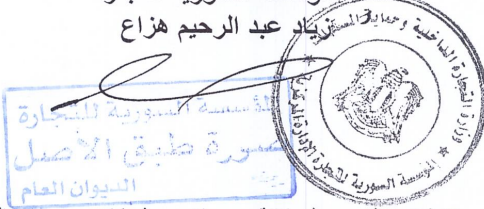 زياد عبد الرحيم هزاع
المؤسسة السورية للتجارة
صورة طبق الأصل
الديوان العام
وزارة التجارة الداخلية وحماية المستهلك
المؤسسة السورية للتجارة الإدارة العامة